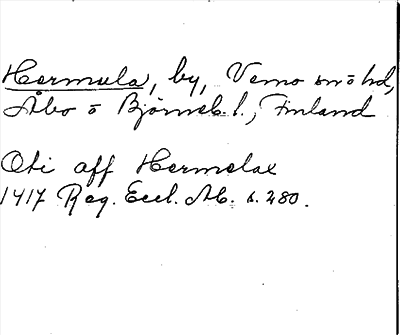 Hermula, by, Vemo sn o hd,
Åbo o Björneb. l., Finland
Oti aff Hermelax
1417 Reg. Eccl. Ab. s. 280.